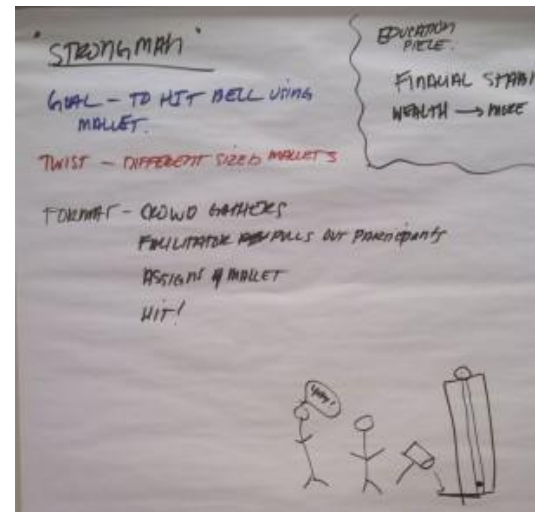 "STRONGMAN"
GOAL – TO HIT BELL USING
MALLET.
TWIST – DIFFERENT SIZED MALLETS
FORMAT – CROWD GATHERS
FACILITATOR PULLS OUT PARTICIPANTS
ASSIGNS MALLET
HIT!
EDUCATION
PIECE.
WEALTH → MORE